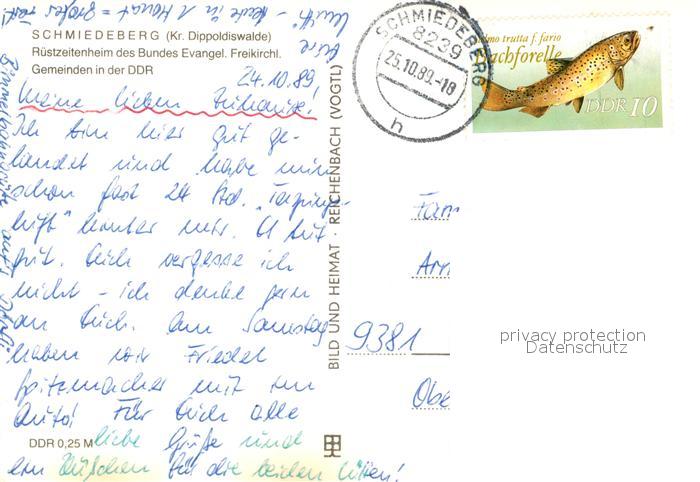 SCHMIEDEBERG (Kr. Dippoldiswalde)
Rüstzeitenheim des Bundes Evangel. Freikirchl.
Gemeinden in der DDR
24.10.89
Meine lieben Zuhause!
Ich bin hier gut ge-
landet und habe nun
schon fast 24 Std.
luft" hinter mir. Es tut
gut. Euch vergesse ich
nicht - ich denke gern
an Euch. Am Samstag
haben wir Friedel
mit im
Auto! Für Euch alle
liebe Grüße und
ein Küßchen für die beiden
DDR 0,25 M
BILD UND HEIMAT · REICHENBACH (VOGTL)
SCHMIEDEBERG
8239
25.10.89.-18
h
Salmo trutta f. fario
Bachforelle
DDR 10
Fam
9381
Obe
privacy protection
Datenschutz